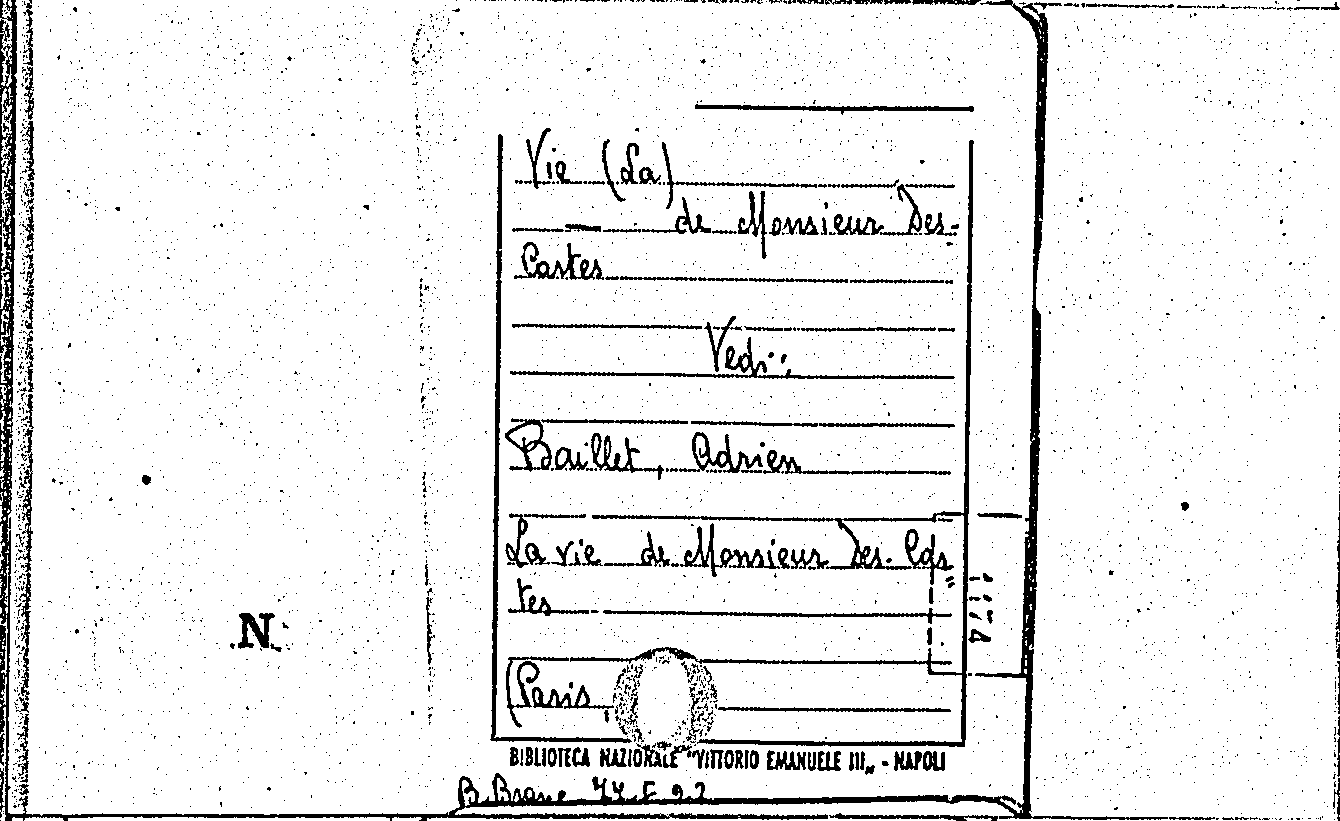 Vie (La)
— de Monsieur Des-
Cartes
Vedi:
Baillet, Adrien
La vie de Monsieur Des-Car
tes
N.
(Paris,
BIBLIOTECA NAZIONALE "VITTORIO EMANUELE III„ - NAPOLI
B. Branc